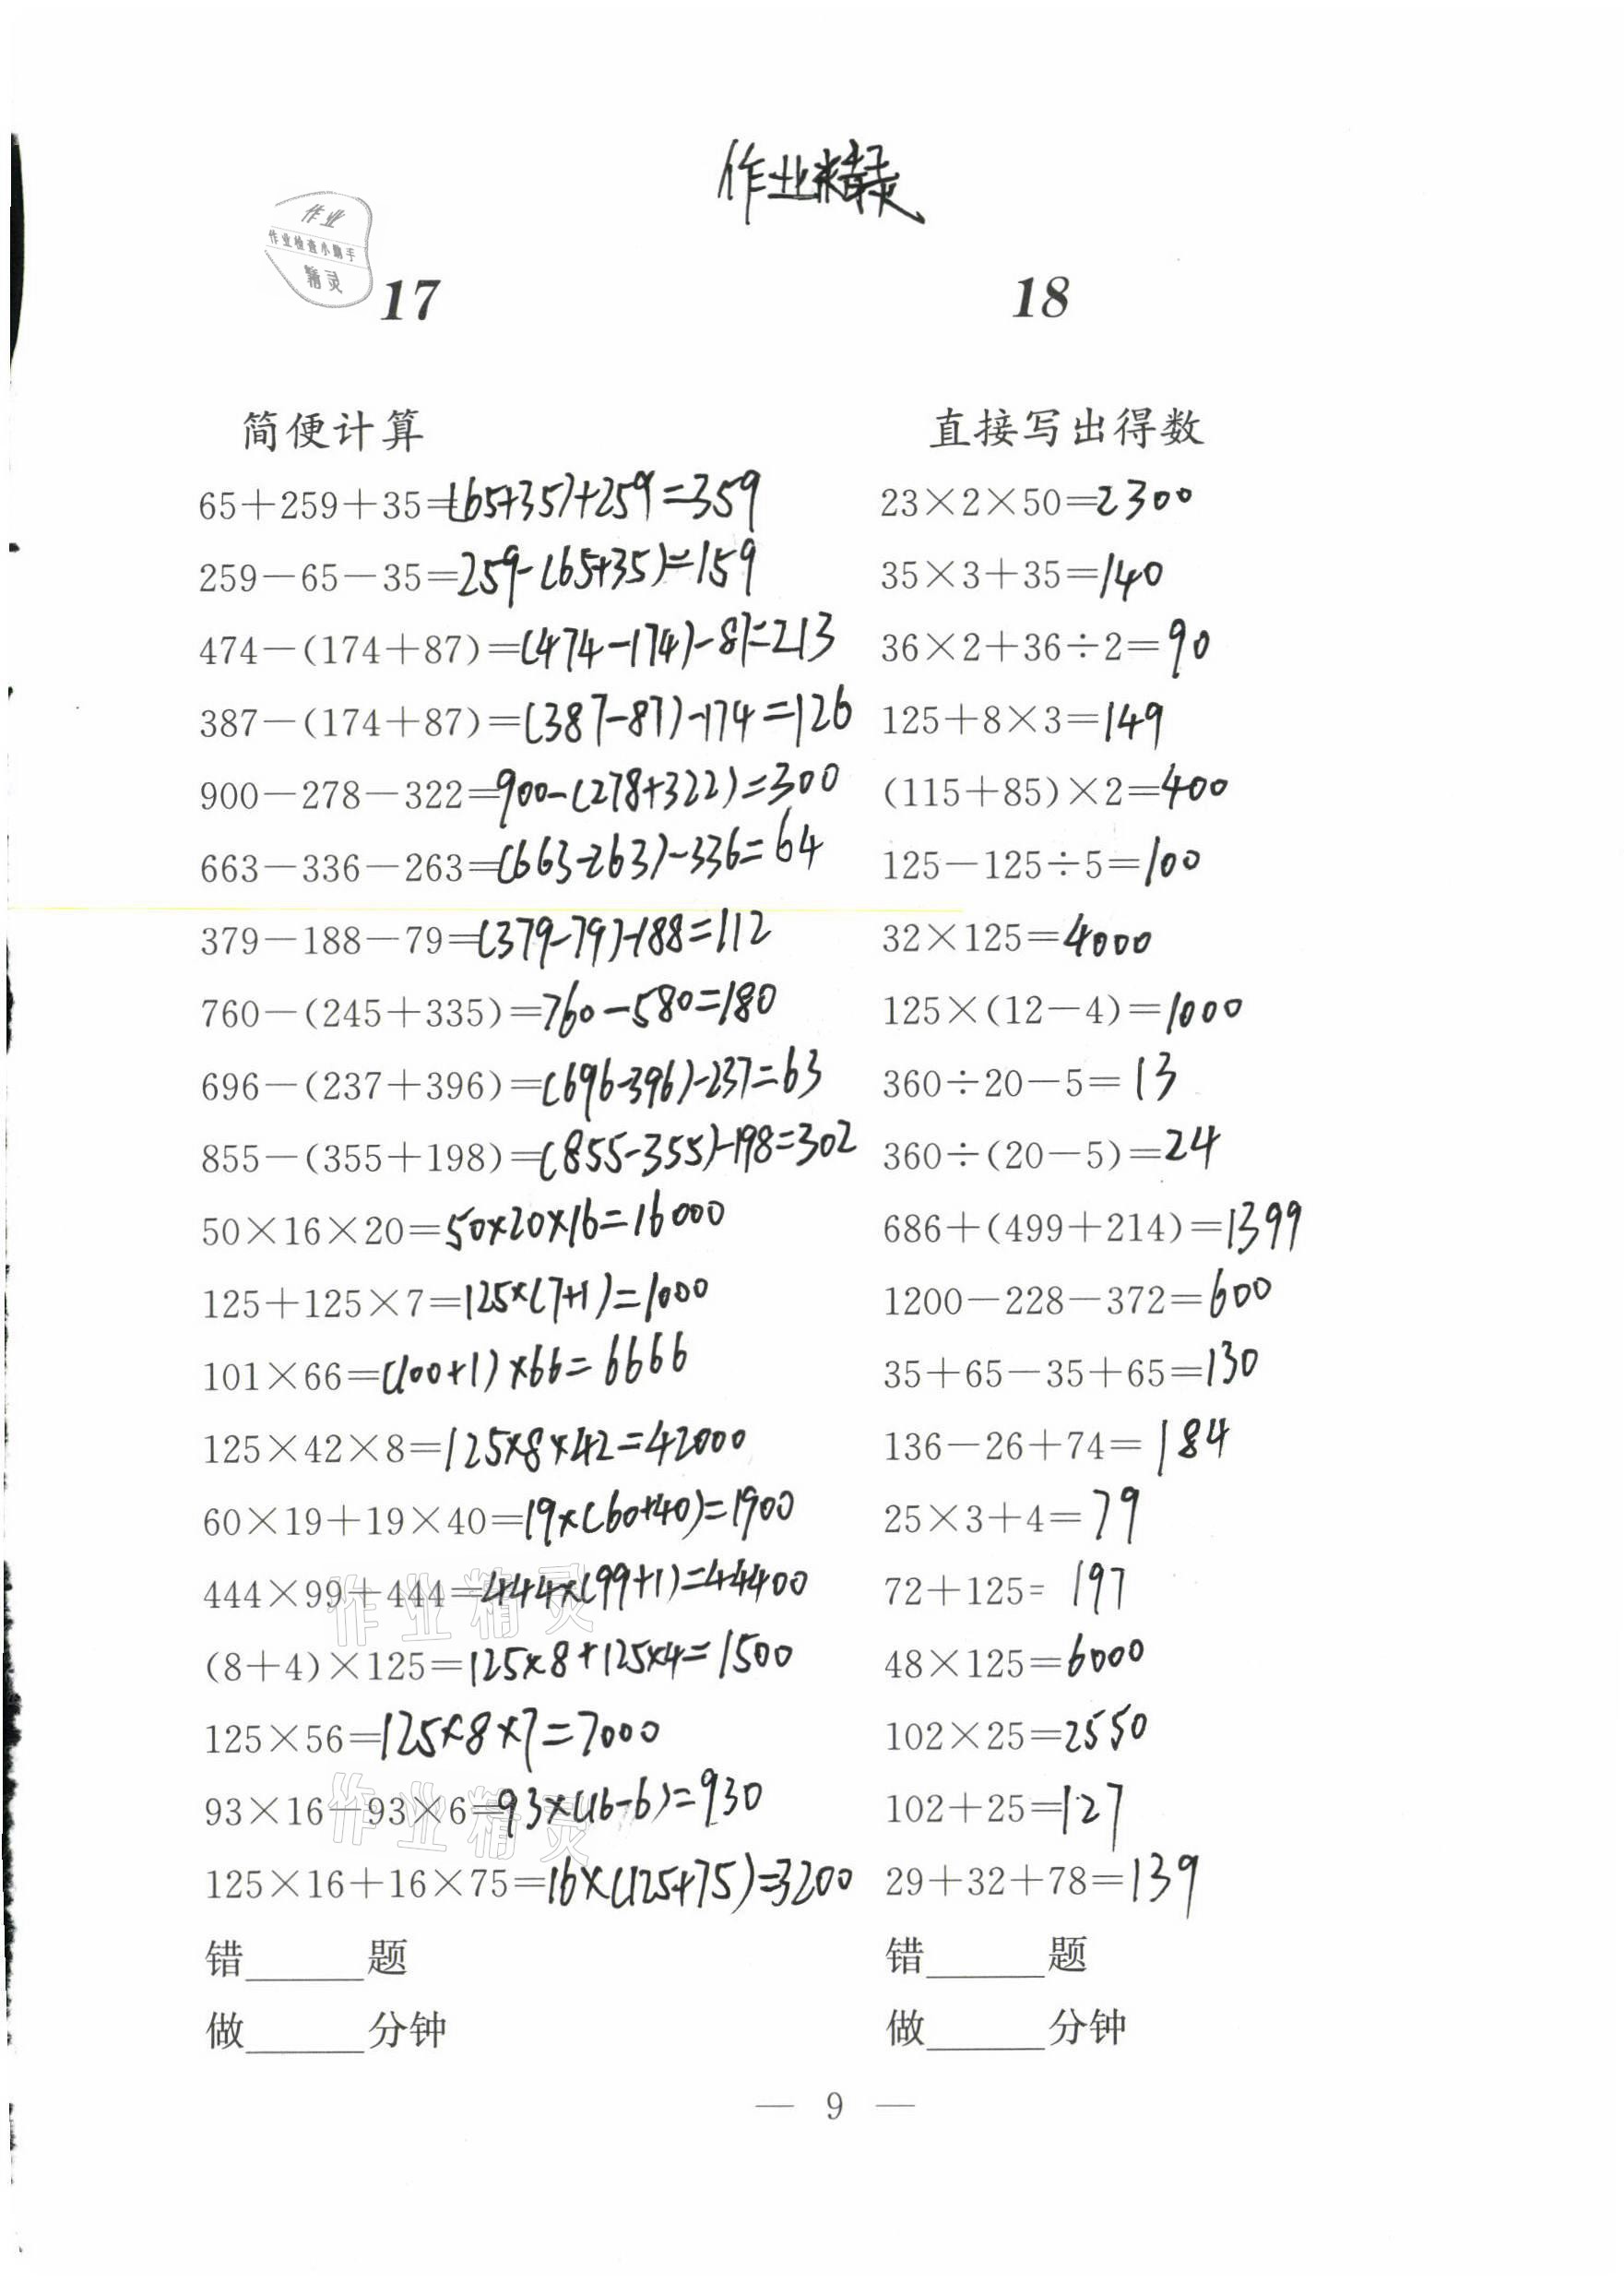 作业精灵
作业
作业检查小助手
精灵
17
简便计算
65+259+35=(65+35)+259=359
259-65-35=259-(65+35)=159
474-(174+87)=(474-174)-87=213
387-(174+87)=(387-87)-174=126
900-278-322=900-(278+322)=300
663-336-263=(663-263)-336=64
379-188-79=(379-79)-188=112
760-(245+335)=760-580=180
696-(237+396)=(696-396)-237=63
855-(355+198)=(855-355)-198=302
50×16×20=50×20×16=16000
125+125×7=125×(7+1)=1000
101×66=(100+1)×66=6666
125×42×8=125×8×42=42000
60×19+19×40=19×(60+40)=1900
444×99+444=444×(99+1)=44400
(8+4)×125=125×8+125×4=1500
125×56=125×8×7=7000
93×16-93×6=93×(16-6)=930
125×16+16×75=16×(125+75)=3200
错_____题
做_____分钟
18
直接写出得数
23×2×50=2300
35×3+35=140
36×2+36÷2=90
125+8×3=149
(115+85)×2=400
125-125÷5=100
32×125=4000
125×(12-4)=1000
360÷20-5=13
360÷(20-5)=24
686+(499+214)=1399
1200-228-372=600
35+65-35+65=130
136-26+74=184
25×3+4=79
72+125=197
48×125=6000
102×25=2550
102+25=127
29+32+78=139
错_____题
做_____分钟
作业精灵
作业精灵
— 9 —